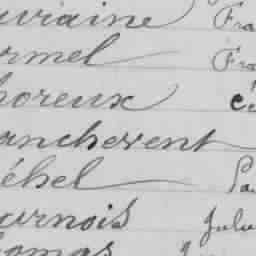 uvraine Fra
rmel Fra
horeux
anchevent
éhel Pa
urnois Julu
homas